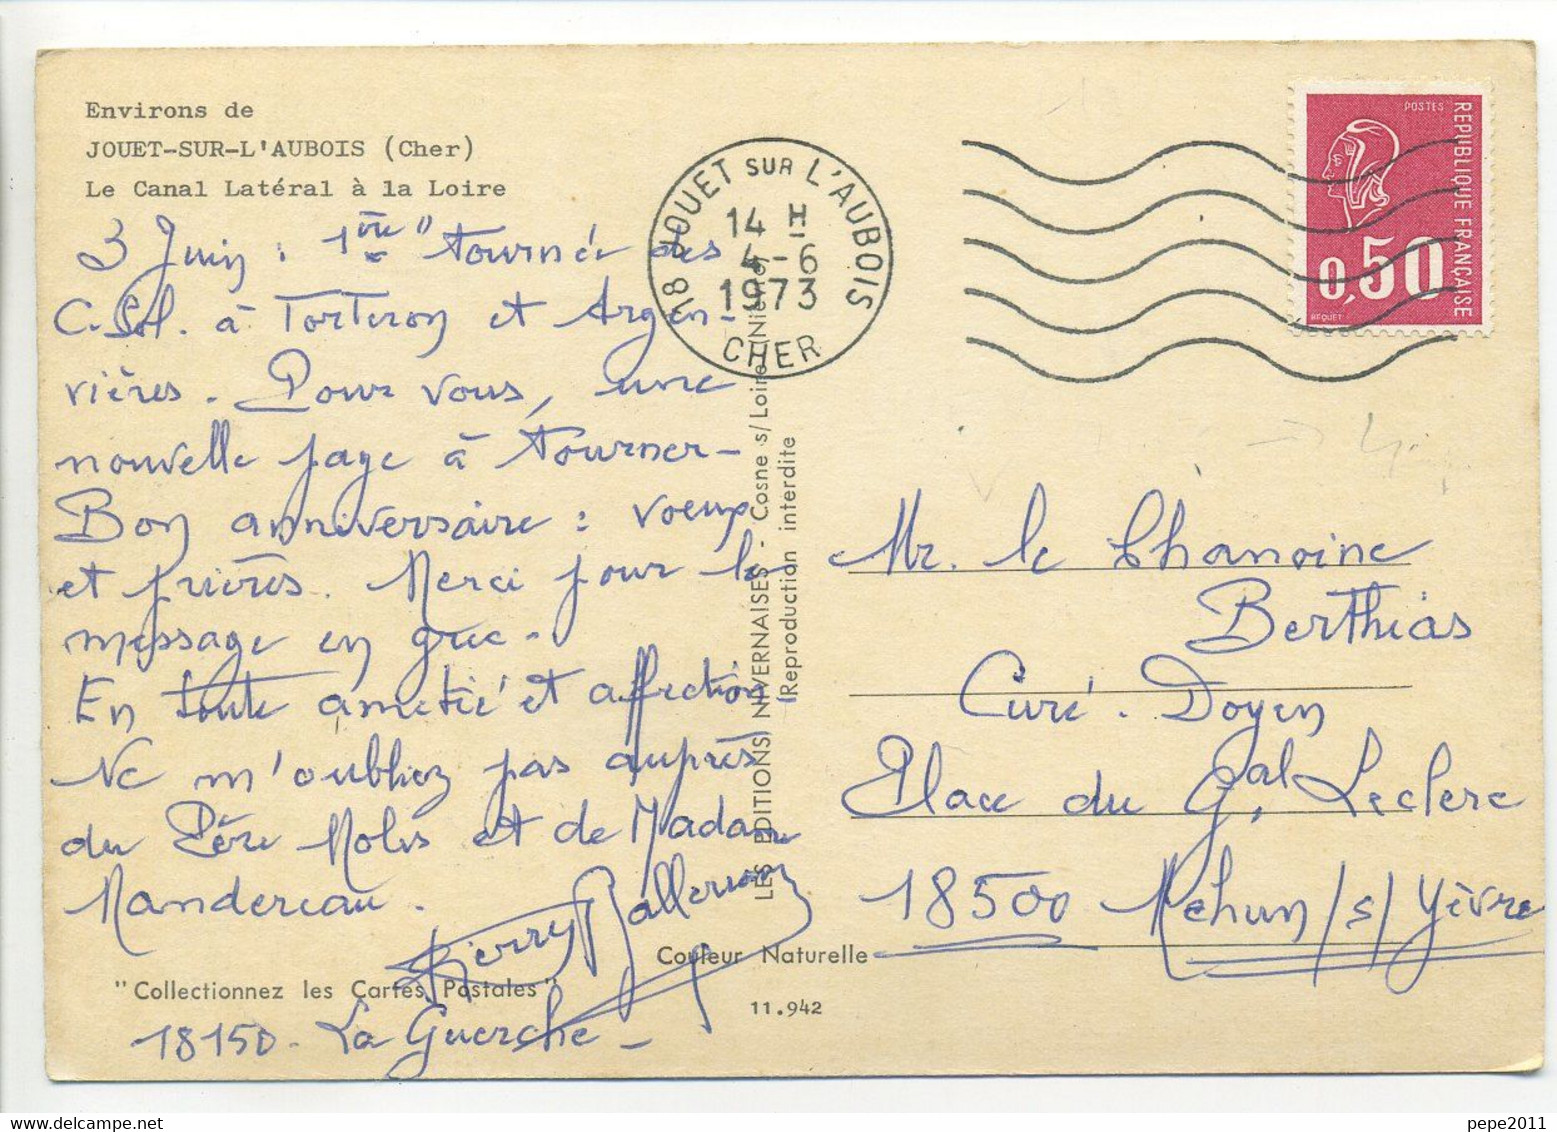 Environs de
JOUET-SUR-L'AUBOIS (Cher)
Le Canal Latéral à la Loire
3 Juin : 1ère" tournée des
C. Sol. à Torteron et Argen-
vières. Pour vous, une
nouvelle page à tourner-
Bon anniversaire : voeux
et prières. Merci pour le
message en grec -
En toute amitié et affection
Ne m'oubliez pas auprès
du Père Molus et de Madame
Mandereau.
Pierre
"Collectionnez les Cartes Postales"
18150 - La Guerche -
LES EDITIONS NIVERNAISES - Cosne s/Loire (Nièvre)
Reproduction interdite
Couleur Naturelle
11.942
18 JOUET SUR L'AUBOIS
14 H
4-6
1973
CHER
POSTES
REPUBLIQUE FRANÇAISE
0,50
BEQUET
Mr. le Chanoine
Berthias
Curé-Doyen
Place du Gal Leclerc
18500 Mehun/s/Yèvre
pepe2011